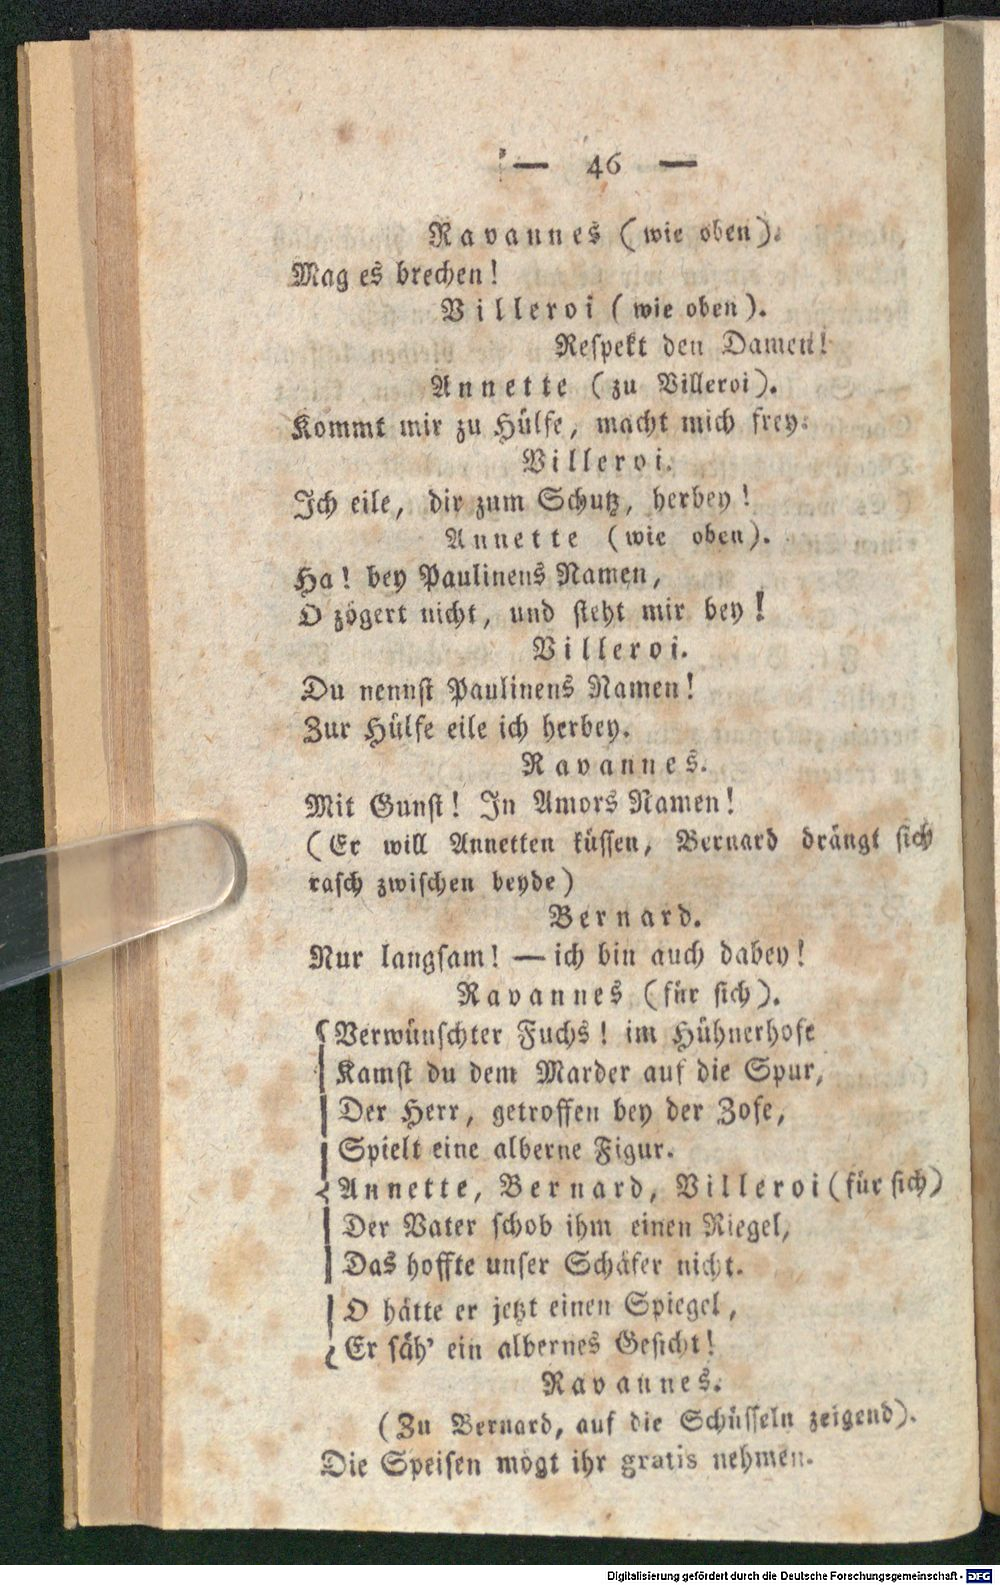 — 46 —
Ravannes (wie oben).
Mag es brechen!
Villeroi (wie oben).
Respekt den Damen!
Annette (zu Villeroi).
Kommt mir zu Hülfe, macht mich frey.
Villeroi.
Ich eile, dir zum Schutz, herbey!
Annette (wie oben).
Ha! bey Paulinens Namen,
O zögert nicht, und steht mir bey!
Villeroi.
Du nennst Paulinens Namen!
Zur Hülfe eile ich herbey.
Ravannes.
Mit Gunst! In Amors Namen!
(Er will Annetten küssen, Bernard drängt sich
rasch zwischen beyde)
Bernard.
Nur langsam! — ich bin auch dabey!
Ravannes (für sich).
Verwünschter Fuchs! im Hühnerhofe
Kamst du dem Marder auf die Spur,
Der Herr, getroffen bey der Zofe,
Spielt eine alberne Figur.
Annette, Bernard, Villeroi (für sich)
Der Vater schob ihm einen Riegel,
Das hoffte unser Schäfer nicht.
O hätte er jetzt einen Spiegel,
Er säh' ein albernes Gesicht!
Ravannes.
(Zu Bernard, auf die Schüsseln zeigend).
Die Speisen mögt ihr gratis nehmen.
Digitalisierung gefördert durch die Deutsche Forschungsgemeinschaft - DFG